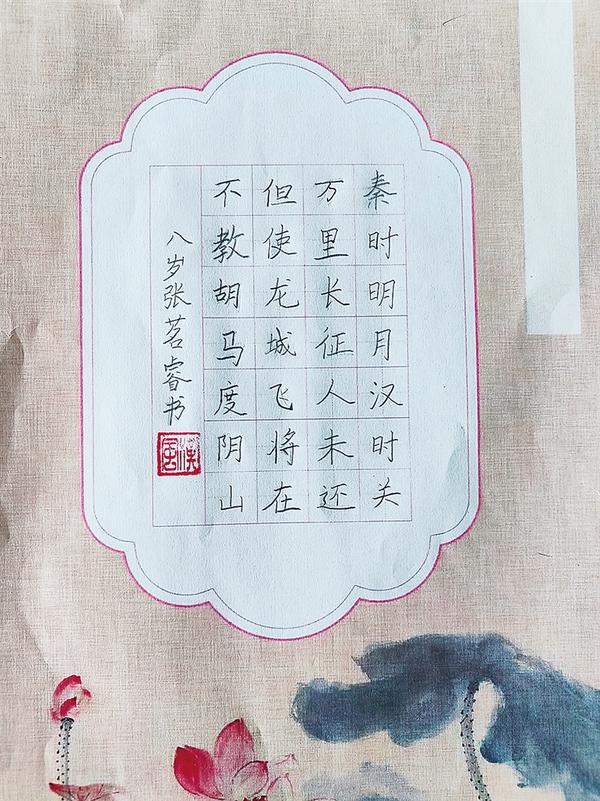 秦时明月汉时关
万里长征人未还
但使龙城飞将在
不教胡马度阴山
八岁张茗睿书